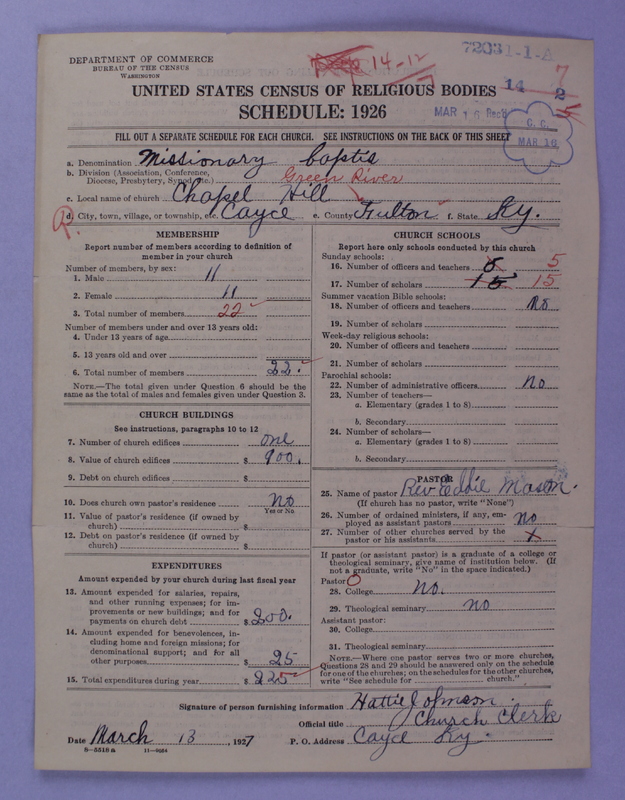 DEPARTMENT OF COMMERCE
BUREAU OF THE CENSUS
WASHINGTON
14-12
72031-1-A
UNITED STATES CENSUS OF RELIGIOUS BODIES
14 2
7
SCHEDULE: 1926
MAR 16 Rec'd
C. C.
MAR 16
FILL OUT A SEPARATE SCHEDULE FOR EACH CHURCH. SEE INSTRUCTIONS ON THE BACK OF THIS SHEET
a. Denomination Missionary baptis
b. Division (Association, Conference, Green River
Diocese, Presbytery, Synod, etc.)
c. Local name of church Chapel Hill
d. City, town, village, or township, etc. Cayce e. County Fulton f. State Ky.
MEMBERSHIP
Report number of members according to definition of
member in your church
Number of members, by sex:
1. Male 11
2. Female 11
3. Total number of members 22
Number of members under and over 13 years old:
4. Under 13 years of age
5. 13 years old and over
6. Total number of members 22.
NOTE.—The total given under Question 6 should be the
same as the total of males and females given under Question 3.
CHURCH BUILDINGS
See instructions, paragraphs 10 to 12
7. Number of church edifices one
8. Value of church edifices $ 900.
9. Debt on church edifices $
10. Does church own pastor's residence No
Yes or No
11. Value of pastor's residence (if owned by
church) $
12. Debt on pastor's residence (if owned by
church) $
EXPENDITURES
Amount expended by your church during last fiscal year
13. Amount expended for salaries, repairs,
and other running expenses; for im-
provements or new buildings; and for
payments on church debt $ 200.
14. Amount expended for benevolences, in-
cluding home and foreign missions; for
denominational support; and for all
other purposes $ 25
15. Total expenditures during year $ 225
CHURCH SCHOOLS
Report here only schools conducted by this church
Sunday schools:
16. Number of officers and teachers 5
17. Number of scholars 15 15
Summer vacation Bible schools:
18. Number of officers and teachers No
19. Number of scholars
Week-day religious schools:
20. Number of officers and teachers
21. Number of scholars
Parochial schools:
22. Number of administrative officers No
23. Number of teachers—
a. Elementary (grades 1 to 8)
b. Secondary
24. Number of scholars—
a. Elementary (grades 1 to 8)
b. Secondary
PASTOR
25. Name of pastor Rev Eddie Mason.
(If church has no pastor, write "None")
26. Number of ordained ministers, if any, em-
ployed as assistant pastors no
27. Number of other churches served by the
pastor or his assistants x
If pastor (or assistant pastor) is a graduate of a college or
theological seminary, give name of institution below. (If
not a graduate, write "No" in the space indicated.)
Pastor:
28. College no.
29. Theological seminary no
Assistant pastor:
30. College
31. Theological seminary
NOTE.—Where one pastor serves two or more churches,
Questions 28 and 29 should be answered only on the schedule
for one of the churches; on the schedules for the other churches,
write "See schedule for church."
Signature of person furnishing information Hattie Johnson
Official title Church Clerk
Date March 13, 1927 P. O. Address Cayce Ky.
8—5518 a 11—9054